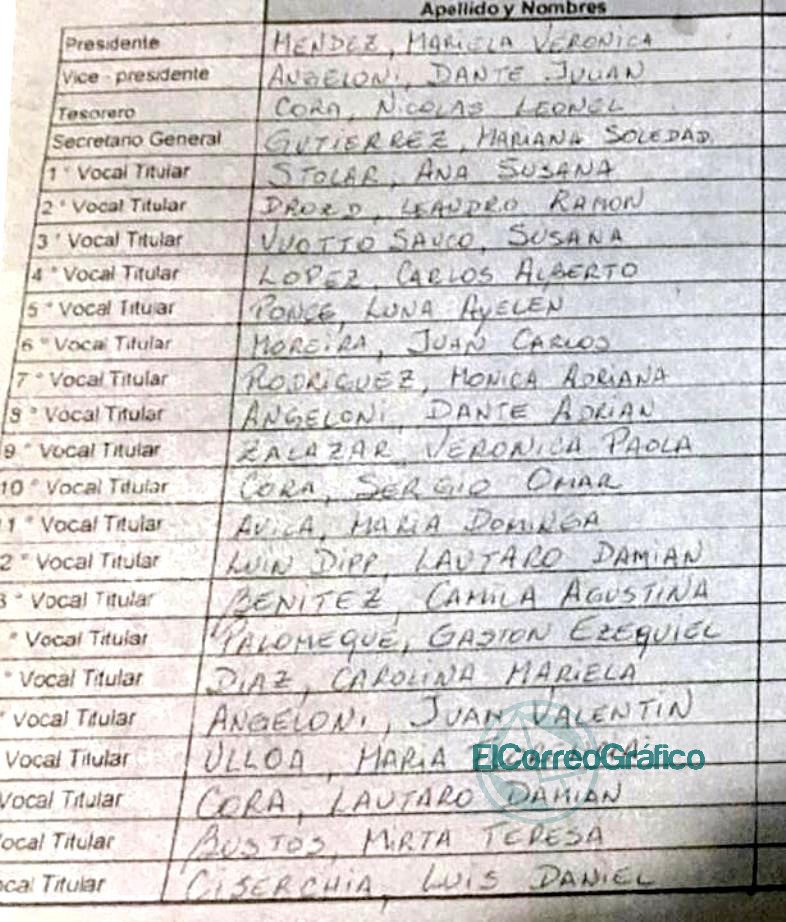 Apellido y Nombres
Presidente MENDEZ, MARIELA VERONICA
Vice - presidente ANGELONI, DANTE JULIAN
Tesorero CORA, NICOLAS LEONEL
Secretario General GUTIERREZ, MARIANA SOLEDAD
1° Vocal Titular STOLAR, ANA SUSANA
2° Vocal Titular LEANDRO RAMON
3° Vocal Titular VUOTTO SAUCO, SUSANA
4° Vocal Titular LOPEZ, CARLOS ALBERTO
5° Vocal Titular PONCE, LUNA AYELEN
6° Vocal Titular MOREIRA, JUAN CARLOS
7° Vocal Titular RODRIGUEZ, MONICA ADRIANA
8° Vocal Titular ANGELONI, DANTE ADRIAN
9° Vocal Titular ZALAZAR, VERONICA PAOLA
10° Vocal Titular CORA, SERGIO OMAR
1° Vocal Titular AVILA, MARIA DOMINGA
2° Vocal Titular LUIN DIPP, LAUTARO DAMIAN
3° Vocal Titular BENITEZ, CAMILA AGUSTINA
° Vocal Titular PALOMEQUE, GASTON EZEQUIEL
° Vocal Titular DIAZ, CAROLINA MARIELA
° Vocal Titular ANGELONI, JUAN VALENTIN
Vocal Titular ULLOA, MARIA
ElCorreoGráfico
Vocal Titular CORA, LAUTARO DAMIAN
ocal Titular BUSTOS, MIRTA TERESA
cal Titular CISERCHIA, LUIS DANIEL